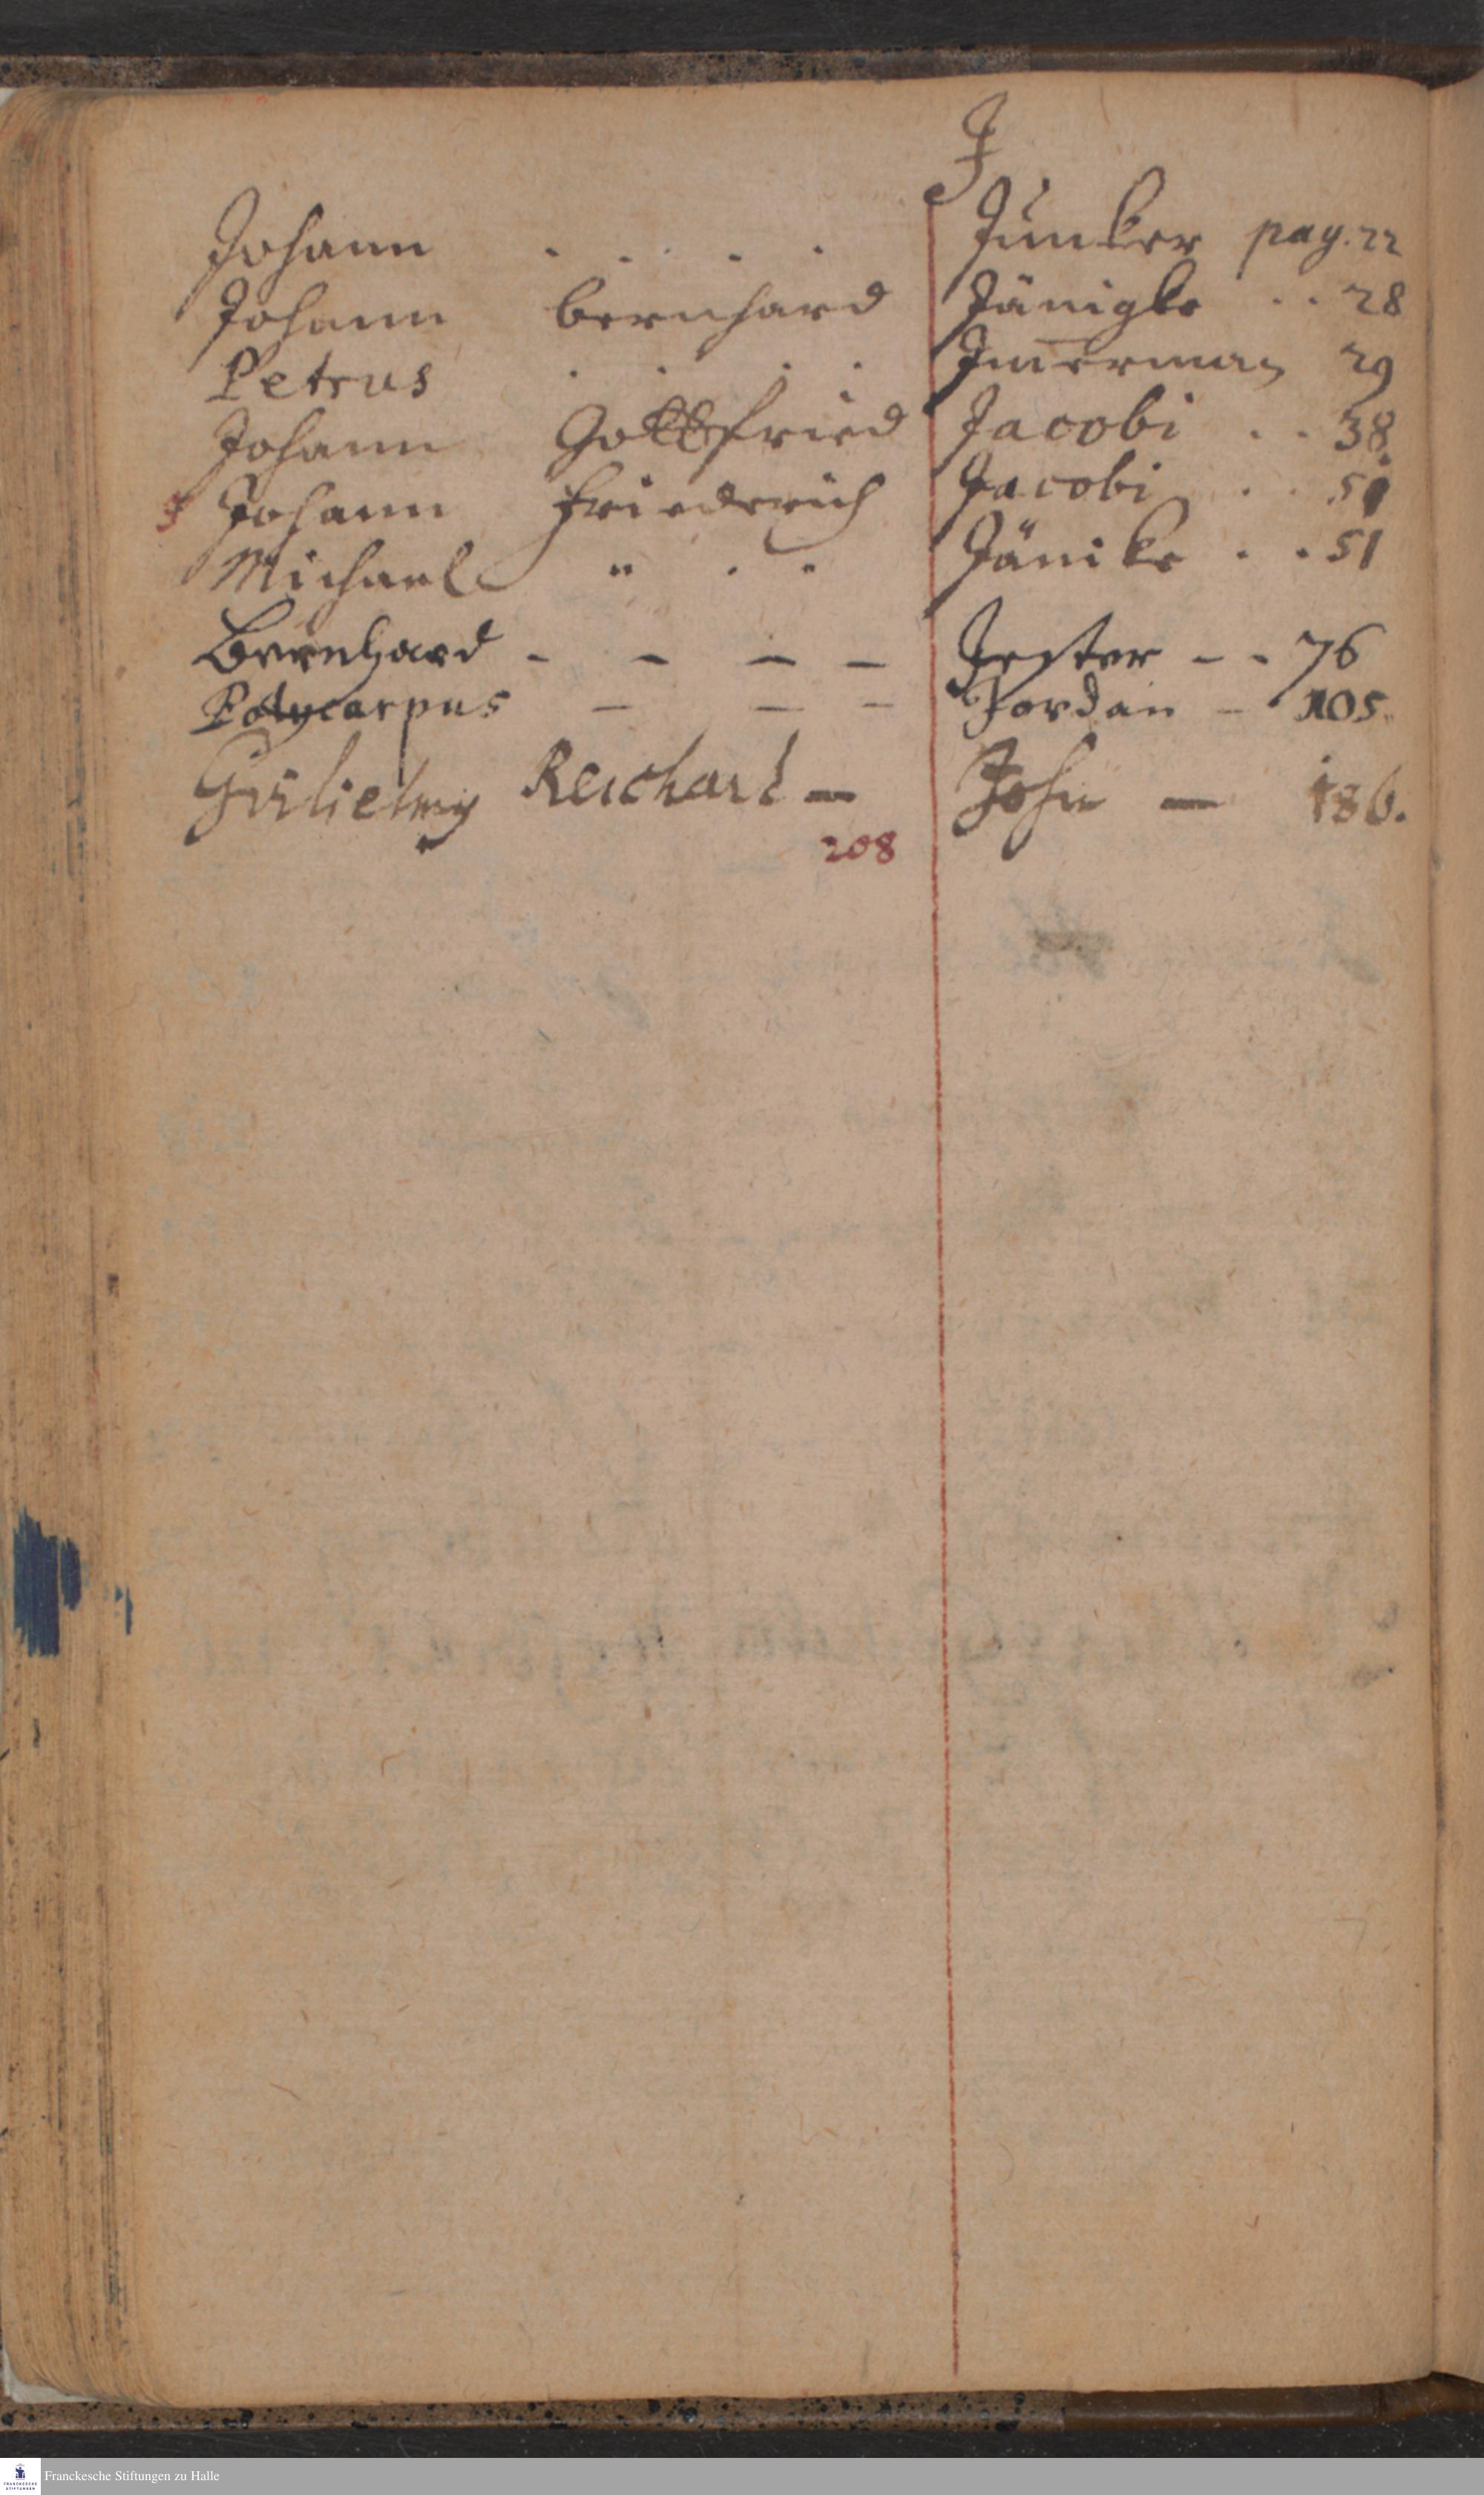 J
Johann . . . . Junker pag. 22
Johann bernhard Jänigke . . 28
Petrus . . . . Im̅erman 29
Johann Gottfried Jacobi . . 38.
Johann Friederich Jacobi . . 51
Michael . . . Jänike . . 51
Bernhard - - - - Jester - - 76
Polycarpus - - - Jordan - 105.
Gvilielmy Reichard - John - 186.
208
Franckesche Stiftungen zu Halle
FRANCKESCHE
STIFTUNGEN